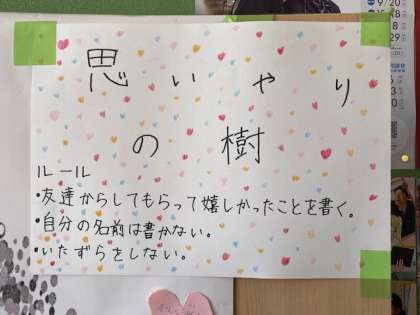 思いやり
の樹
ルール
・友達からしてもらって嬉しかったことを書く。
・自分の名前は書かない。
・いたずらをしない。
9/20